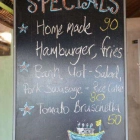 SPECIALS
Home Made 90
Hamburger, fries
Banh Mat - Salad,
Pork Sausage -
80
Tomato Bruschetta
50